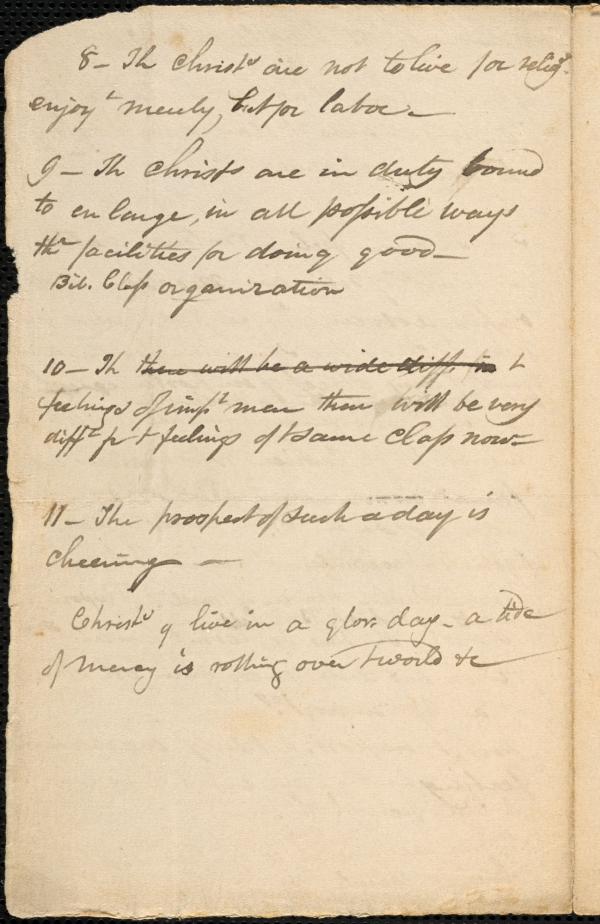 8 – Th Christs are not to live for relig.
enjoyt merely, but for labor. –
9 – Th Christs are in duty bound
to enlarge, in all possible ways
thr facilities for doing good –
Bib. Class organization
10 – Th there will be a wide diff. in t
feelings of impt men then will be very
difft fr t feelings of t same class now –
11 – The prospect of such a day is
cheering –
Christs y live in a glors day – a tide
of mercy is rolling over t world &c